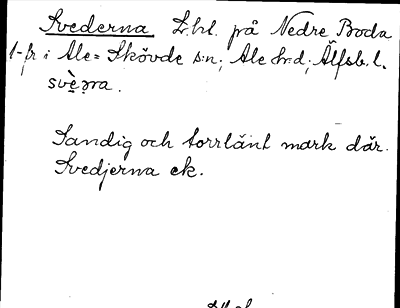 Svederna L.hl. på Nedre Boda
1-fr i Ale-Skövde sn; Ale hrd; Älfsb. l.
svè̤rna.
Sandig och torrlänt mark där.
Svedjerna ek.